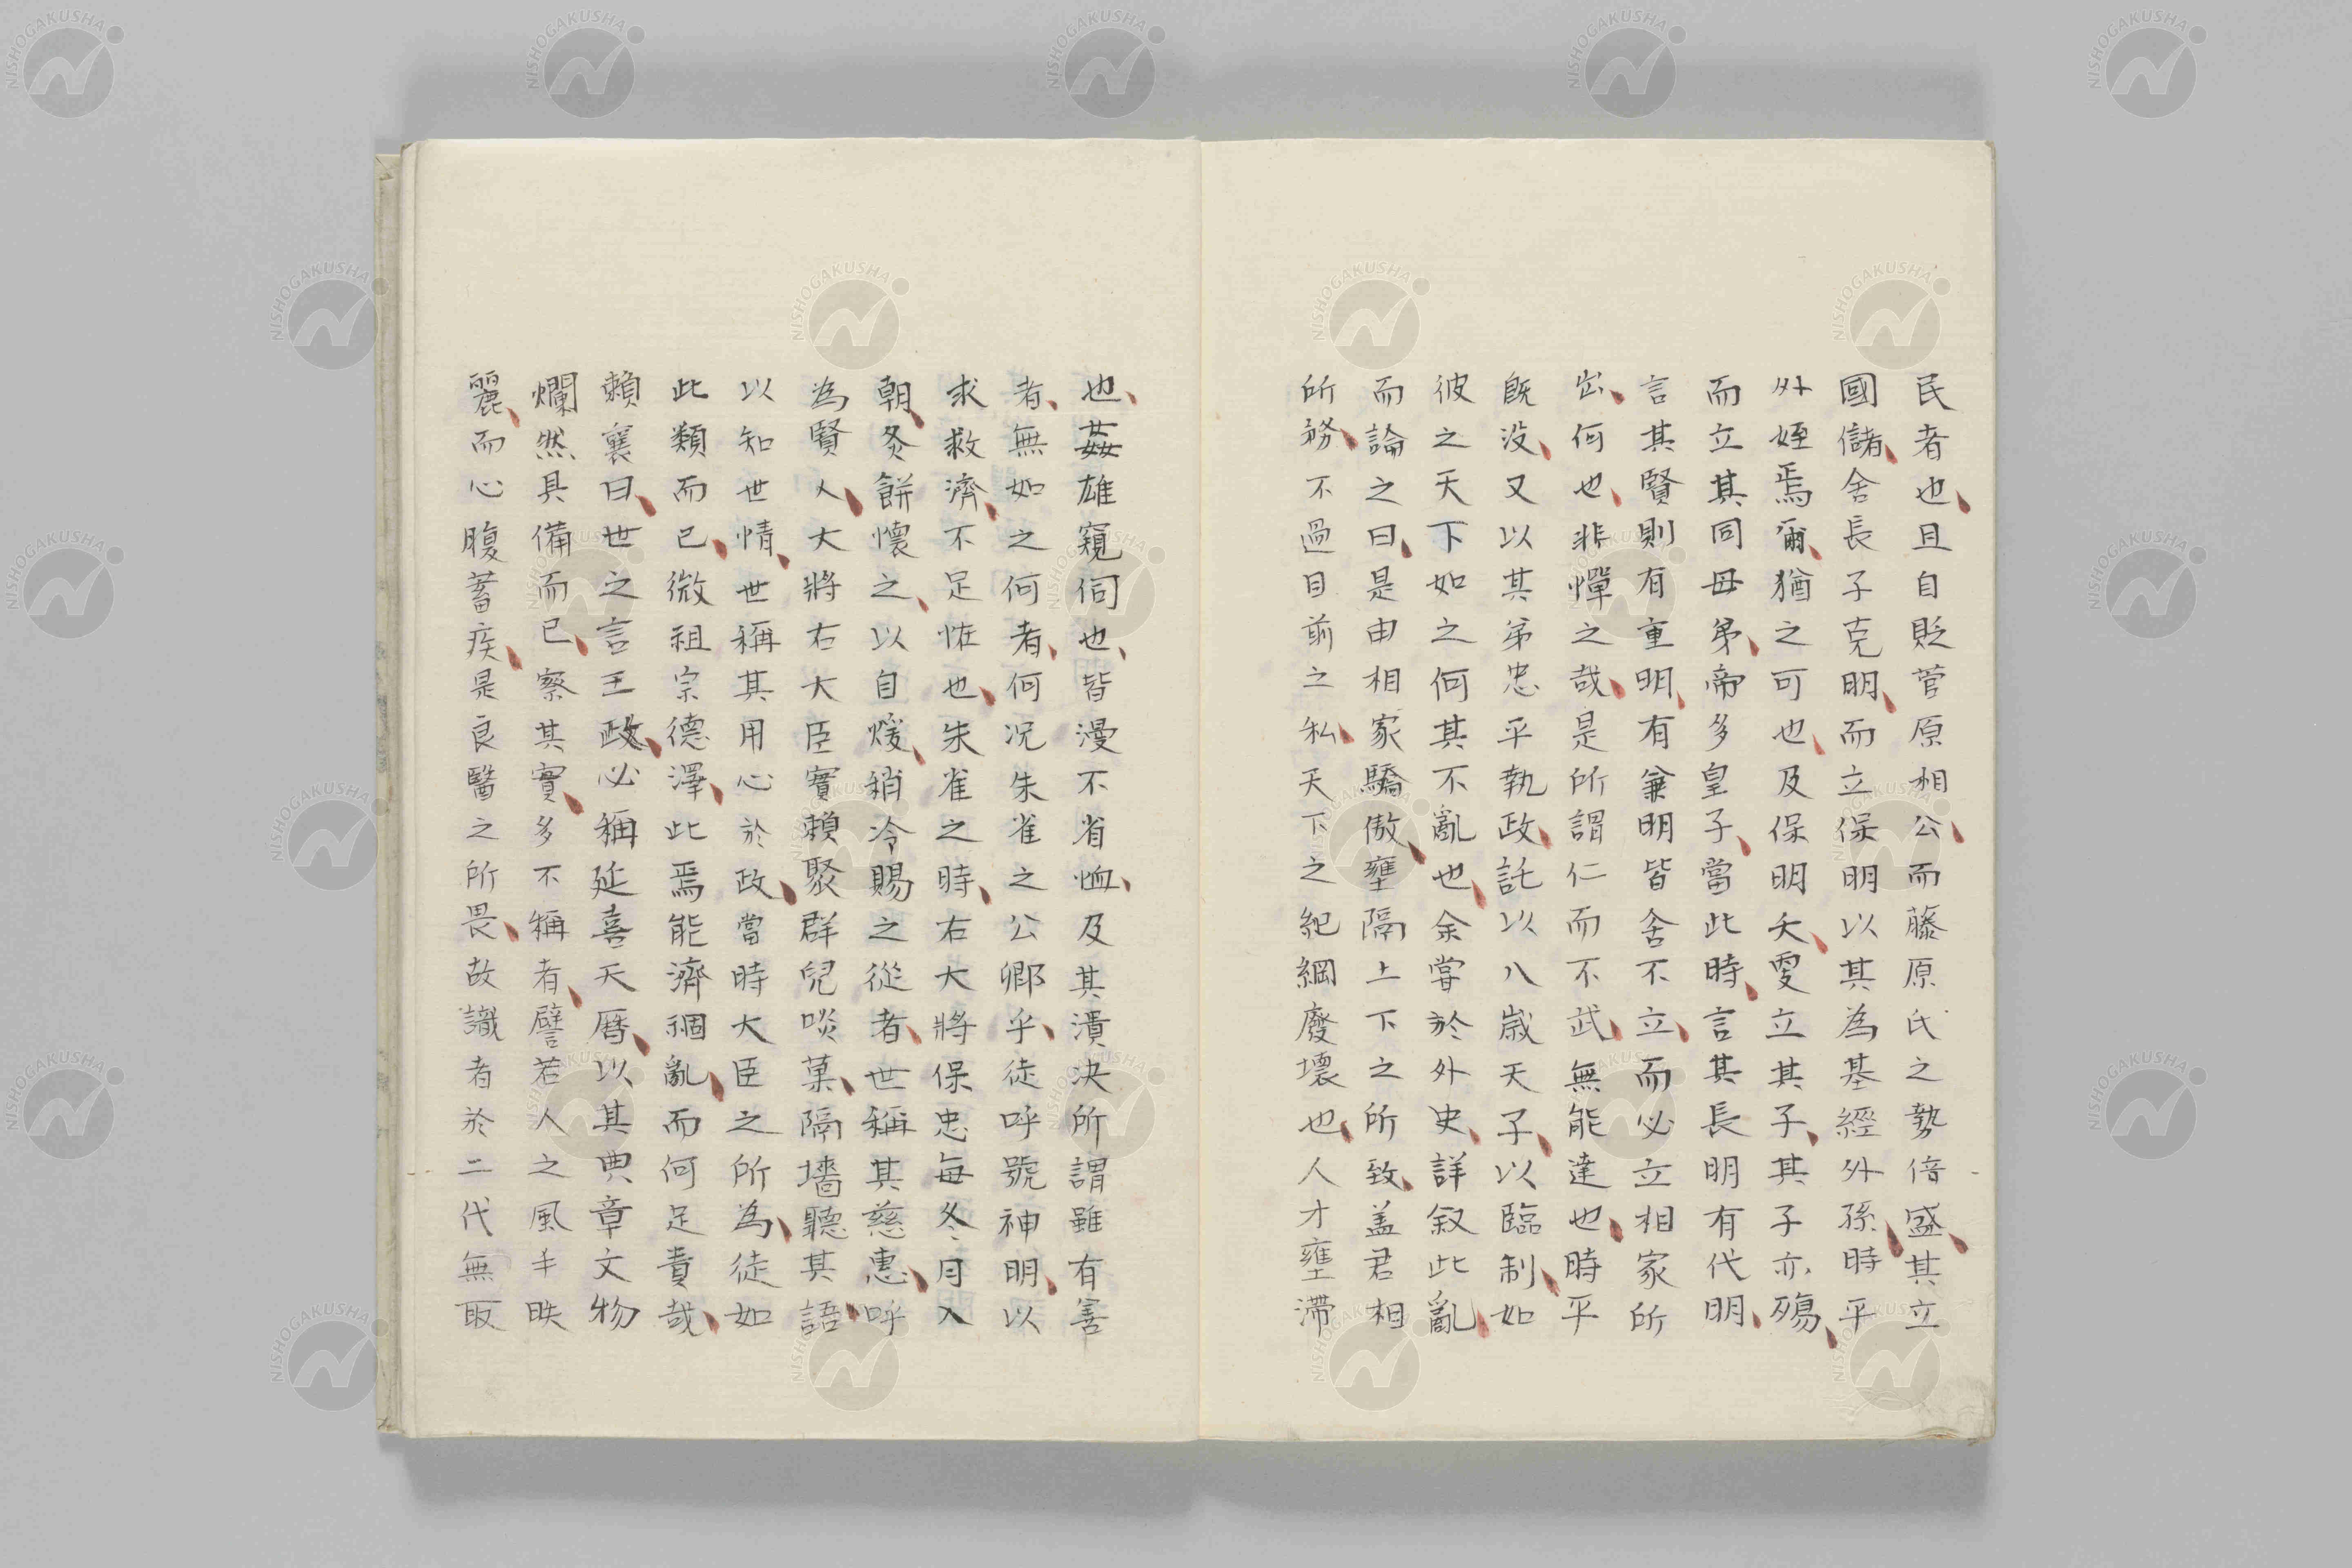 民者也、且自貶菅原相公、而藤原氏之勢倍盛、其立
國儲、舍長子克明、而立保明以其為基經外孫、時平
外姪焉爾、猶之可也、及保明夭、更立其子、其子亦殤、
而立其同母弟、帝多皇子、當此時、言其長明有代明、
言其賢則有重明、有兼明皆舍不立、而必立相家所
出、何也、非憚之哉、是所謂仁而不武、無能達也、時平
既没、又以其弟忠平執政、託以八歳天子、以臨制、如
彼之天下如之何其不亂也、余嘗於外史、詳叙此亂、
而論之曰、是由相家驕傲、壅隔上下之所致、盖君相
所務、不過目前之私、天下之紀綱廢壞也、人才壅滯
也、姦雄窺伺也、皆漫不省恤、及其潰決所謂雖有善
者、無如之何者、何況朱雀之公卿乎、徒呼號神明、以
求救濟、不足恠也、朱雀之時、右大將保忠每冬月入
朝、炙餅懷之、以自煖、稍冷賜之從者、世稱其慈惠、呼
為賢人、大將右大臣實賴聚群兒啖菓、隔墻聽其語、
以知世情、世稱其用心於政、當時大臣之所為、徒如
此類而已、微祖宗德澤、此焉能濟禍亂、而何足責哉、
賴襄曰、世之言王政、必稱延喜天曆、以其典章文物
爛然具備而已、察其實、多不稱者、譬若人之風丰昳
麗、而心腹蓄疾、是良醫之所畏、故識者於二代無取